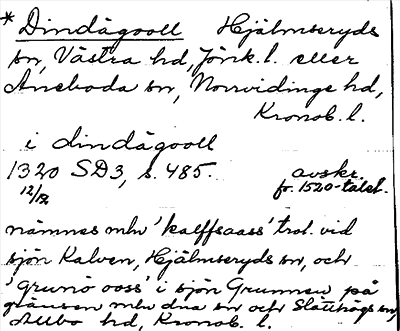 * Dindågooll Hjälmseryds
sn, Västra hd, Jönk. l. eller
Aneboda sn, Norrvidinge hd,
Kronob. l.
i dindågooll
1320 SD3, s. 485. avskr.
12/12 fr. 1520-talet.
nämnes mln 'kalffsaass' trol. vid
sjön Kalven, Hjälmseryds sn, och
'grunö ooss' i sjön Grunnen på
gränsen mln dna sn och Slätthögs sn,
Allbo hd, Kronob. l.